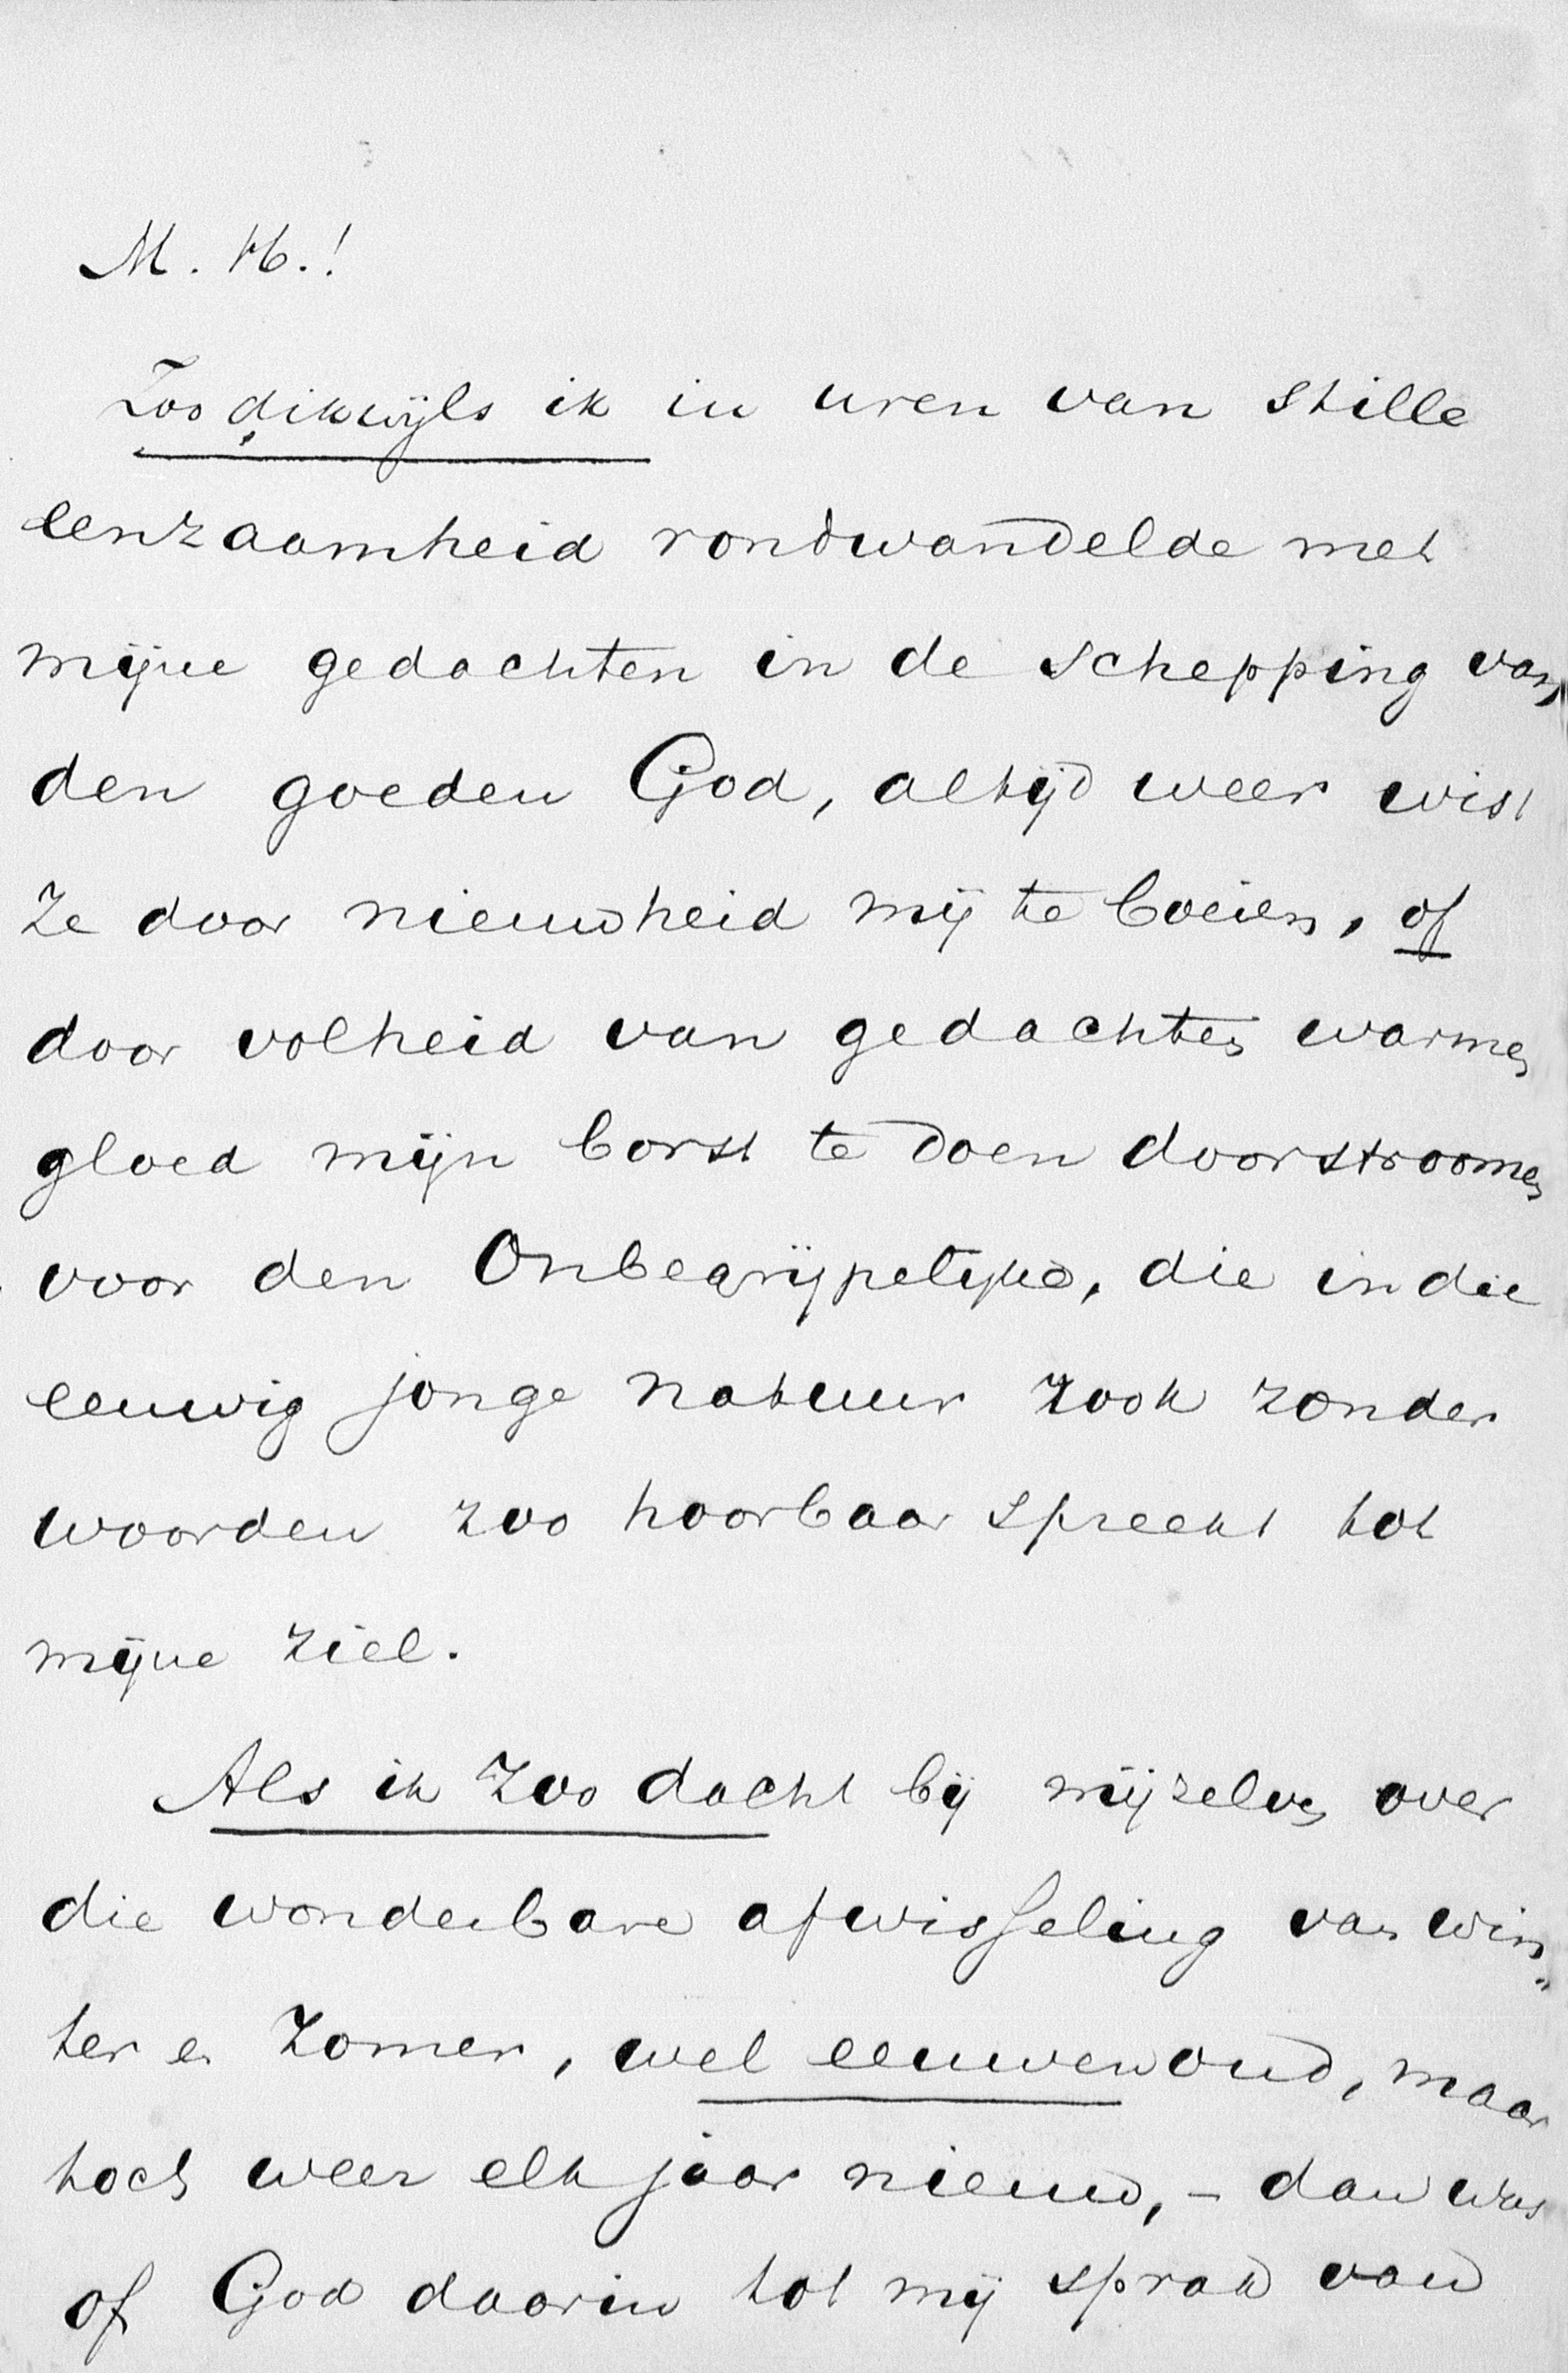 M. H.!
Zoo dikwijls ik in uren van stille
eenzaamheid rondwandelde met
mijne gedachten in de schepping van
den goeden God, altijd weer wist
ze door nieuwheid mij te boeien, of
door volheid van gedachten warmen
gloed mijn borst te doen doorstroomen
voor den Onbegrijpelijke, die in die
eeuwig jonge natuur zook zonder
woorden zoo hoorbaar spreekt tot
mijne ziel.
Als ik zoo dacht bij mijzelven over
die wonderbare afwisseling van win„
ter en zomer, wel eeuwenoud, maar
toch weer elk jaar nieuw, - dan was
of God daarin tot mij sprak van